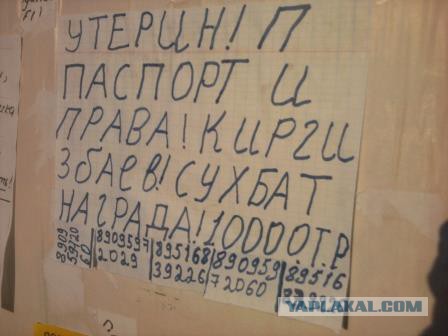 УТЕРИН! П
ПАСПОРТ И
ПРАВА! КИРГИ
ЗБАЕВ! СУХБАТ
НАГРАДА! 10000ТР
8909597 2029
895168 39226
890959 72060
89516
YAPLAKAL.COM